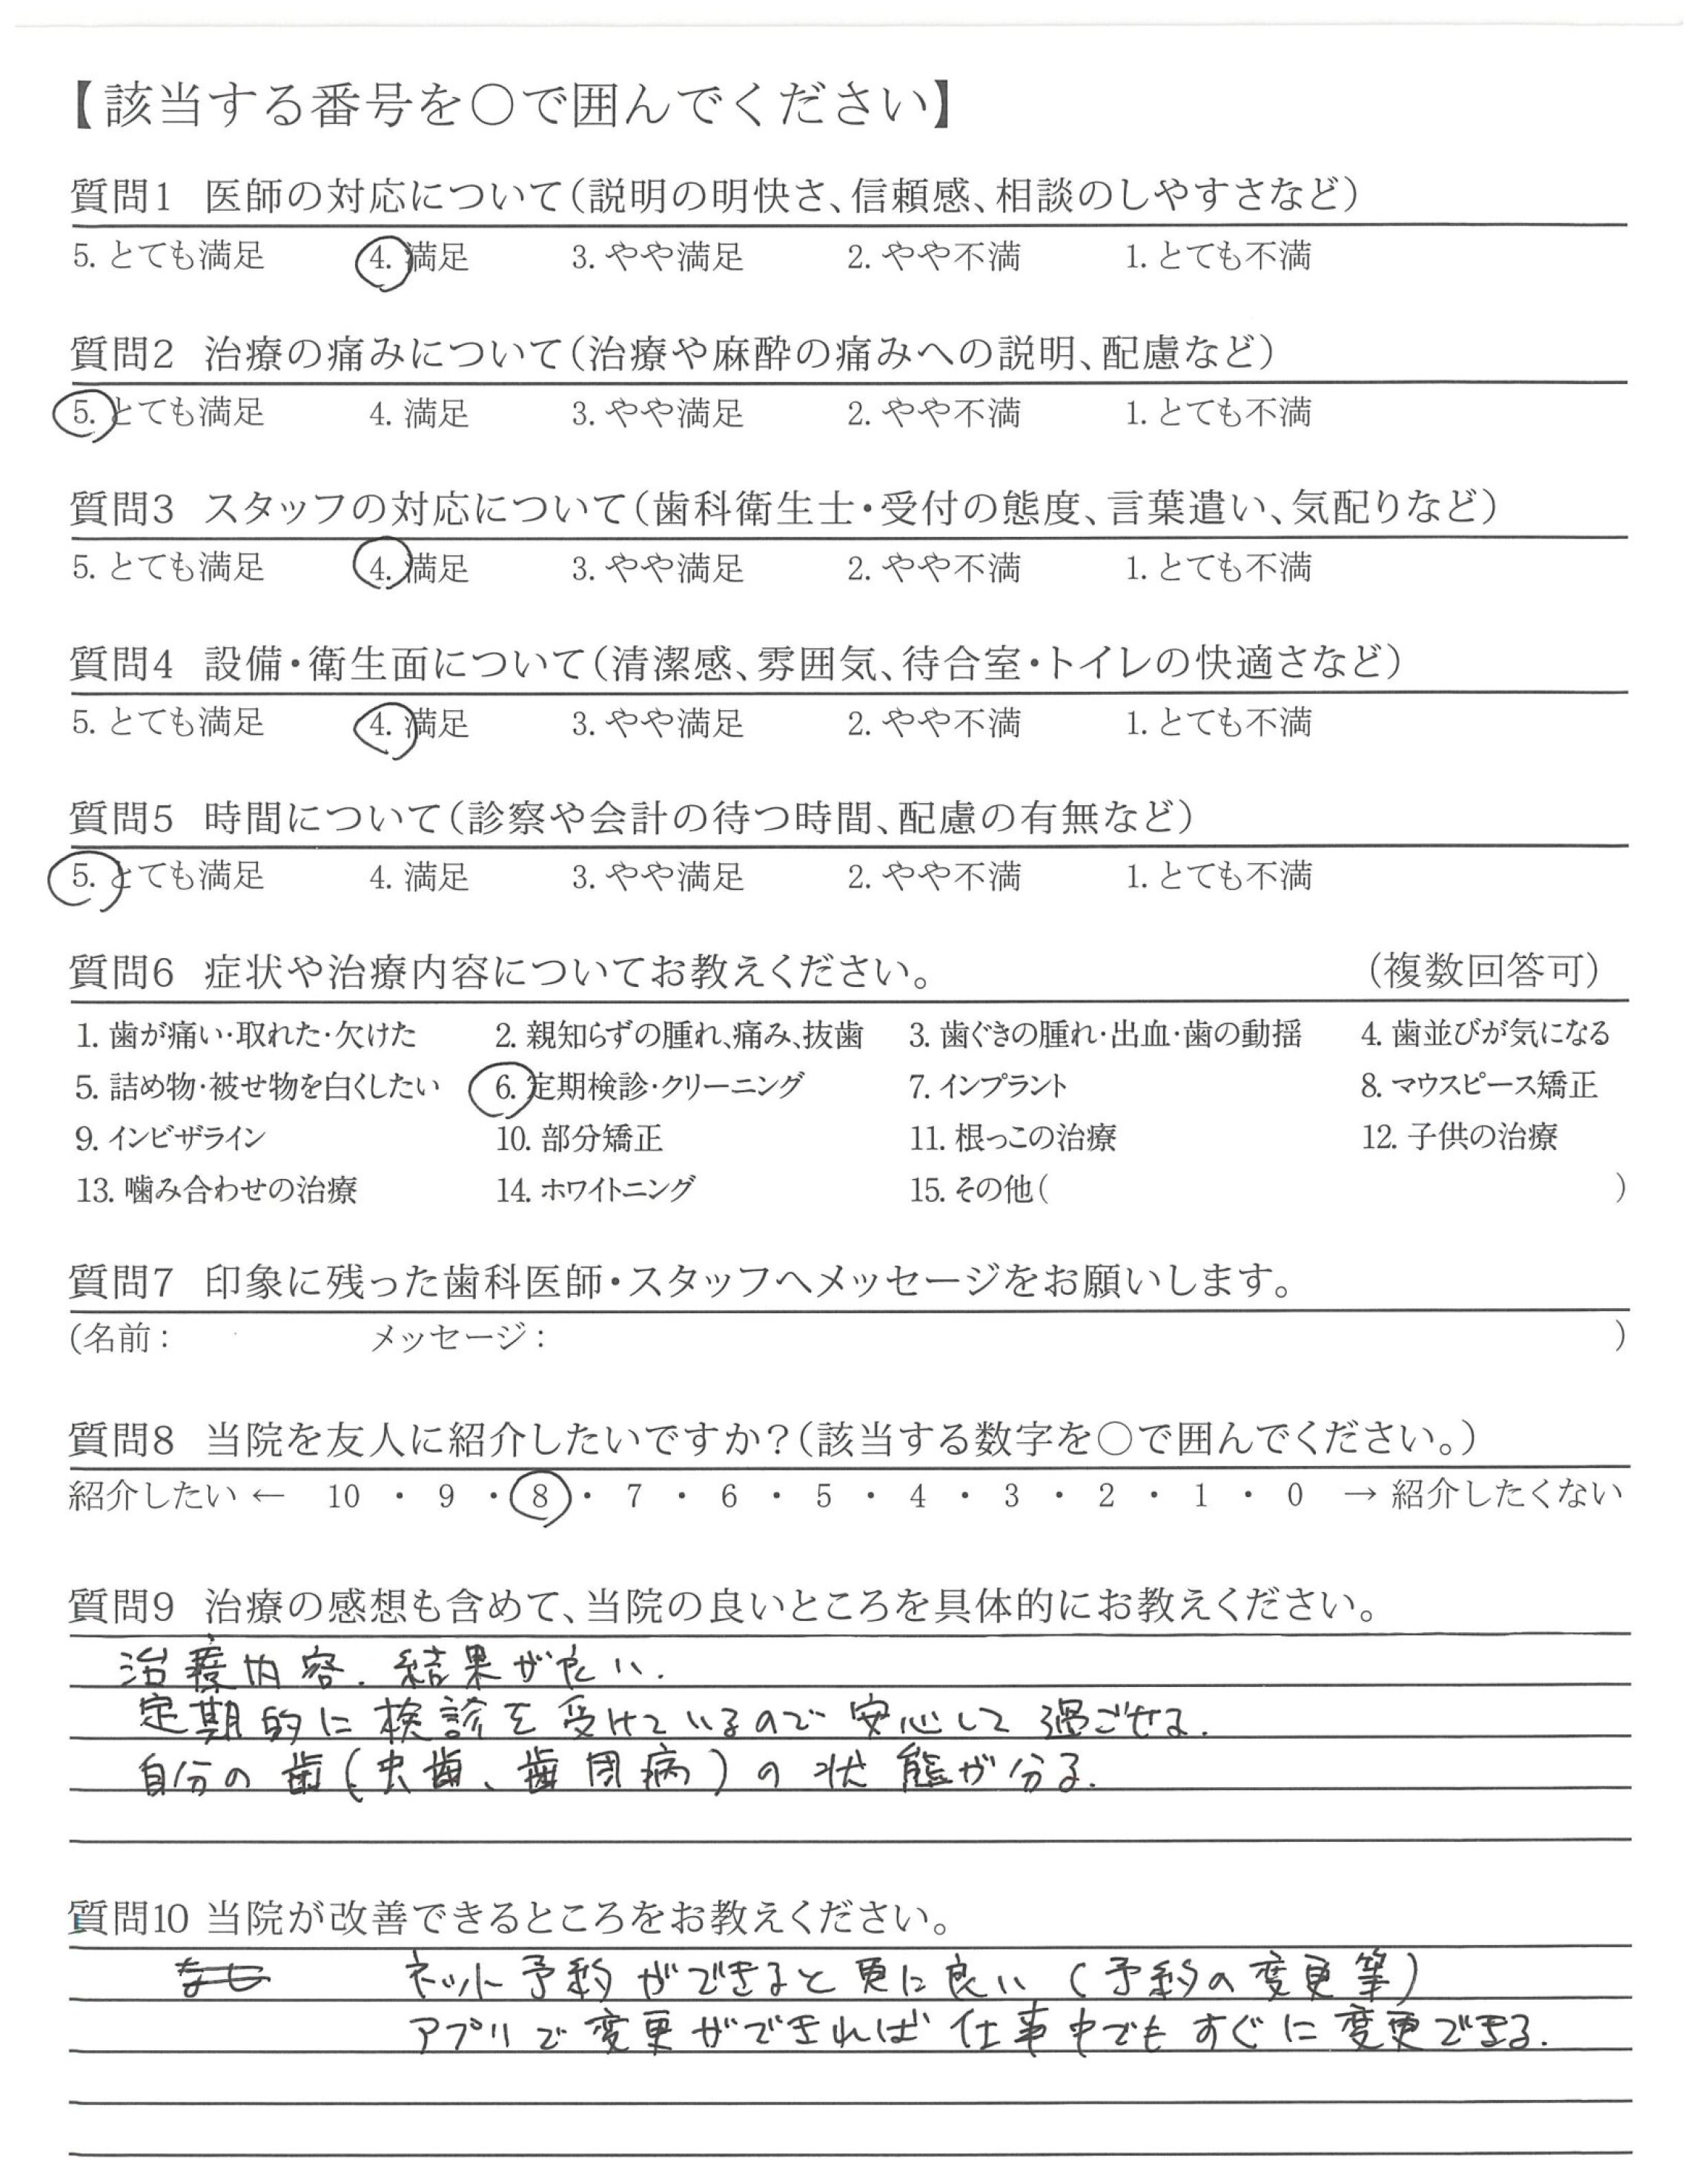 【該当する番号を○で囲んでください】
質問1 医師の対応について(説明の明快さ、信頼感、相談のしやすさなど)
5. とても満足 4. 満足 3. やや満足 2. やや不満 1. とても不満
質問2 治療の痛みについて(治療や麻酔の痛みへの説明、配慮など)
5. とても満足 4. 満足 3. やや満足 2. やや不満 1. とても不満
質問3 スタッフの対応について(歯科衛生士・受付の態度、言葉遣い、気配りなど)
5. とても満足 4. 満足 3. やや満足 2. やや不満 1. とても不満
質問4 設備・衛生面について(清潔感、雰囲気、待合室・トイレの快適さなど)
5. とても満足 4. 満足 3. やや満足 2. やや不満 1. とても不満
質問5 時間について(診察や会計の待つ時間、配慮の有無など)
5. とても満足 4. 満足 3. やや満足 2. やや不満 1. とても不満
質問6 症状や治療内容についてお教えください。 (複数回答可)
1. 歯が痛い・取れた・欠けた 2. 親知らずの腫れ、痛み、抜歯 3. 歯ぐきの腫れ・出血・歯の動揺 4. 歯並びが気になる
5. 詰め物・被せ物を白くしたい 6. 定期検診・クリーニング 7. インプラント 8. マウスピース矯正
9. インビザライン 10. 部分矯正 11. 根っこの治療 12. 子供の治療
13. 噛み合わせの治療 14. ホワイトニング 15. その他( )
質問7 印象に残った歯科医師・スタッフへメッセージをお願いします。
(名前: メッセージ: )
質問8 当院を友人に紹介したいですか?(該当する数字を○で囲んでください。)
紹介したい ← 10 ・ 9 ・ 8 ・ 7 ・ 6 ・ 5 ・ 4 ・ 3 ・ 2 ・ 1 ・ 0 → 紹介したくない
質問9 治療の感想も含めて、当院の良いところを具体的にお教えください。
治療内容、結果が良い.
定期的に検診を受けているので安心して過ごせる.
自分の歯(虫歯、歯周病)の状態が分る.
質問10 当院が改善できるところをお教えください。
なし ネット予約ができると更に良い(予約の変更等)
アプリで変更ができれば仕事中でもすぐに変更できる.